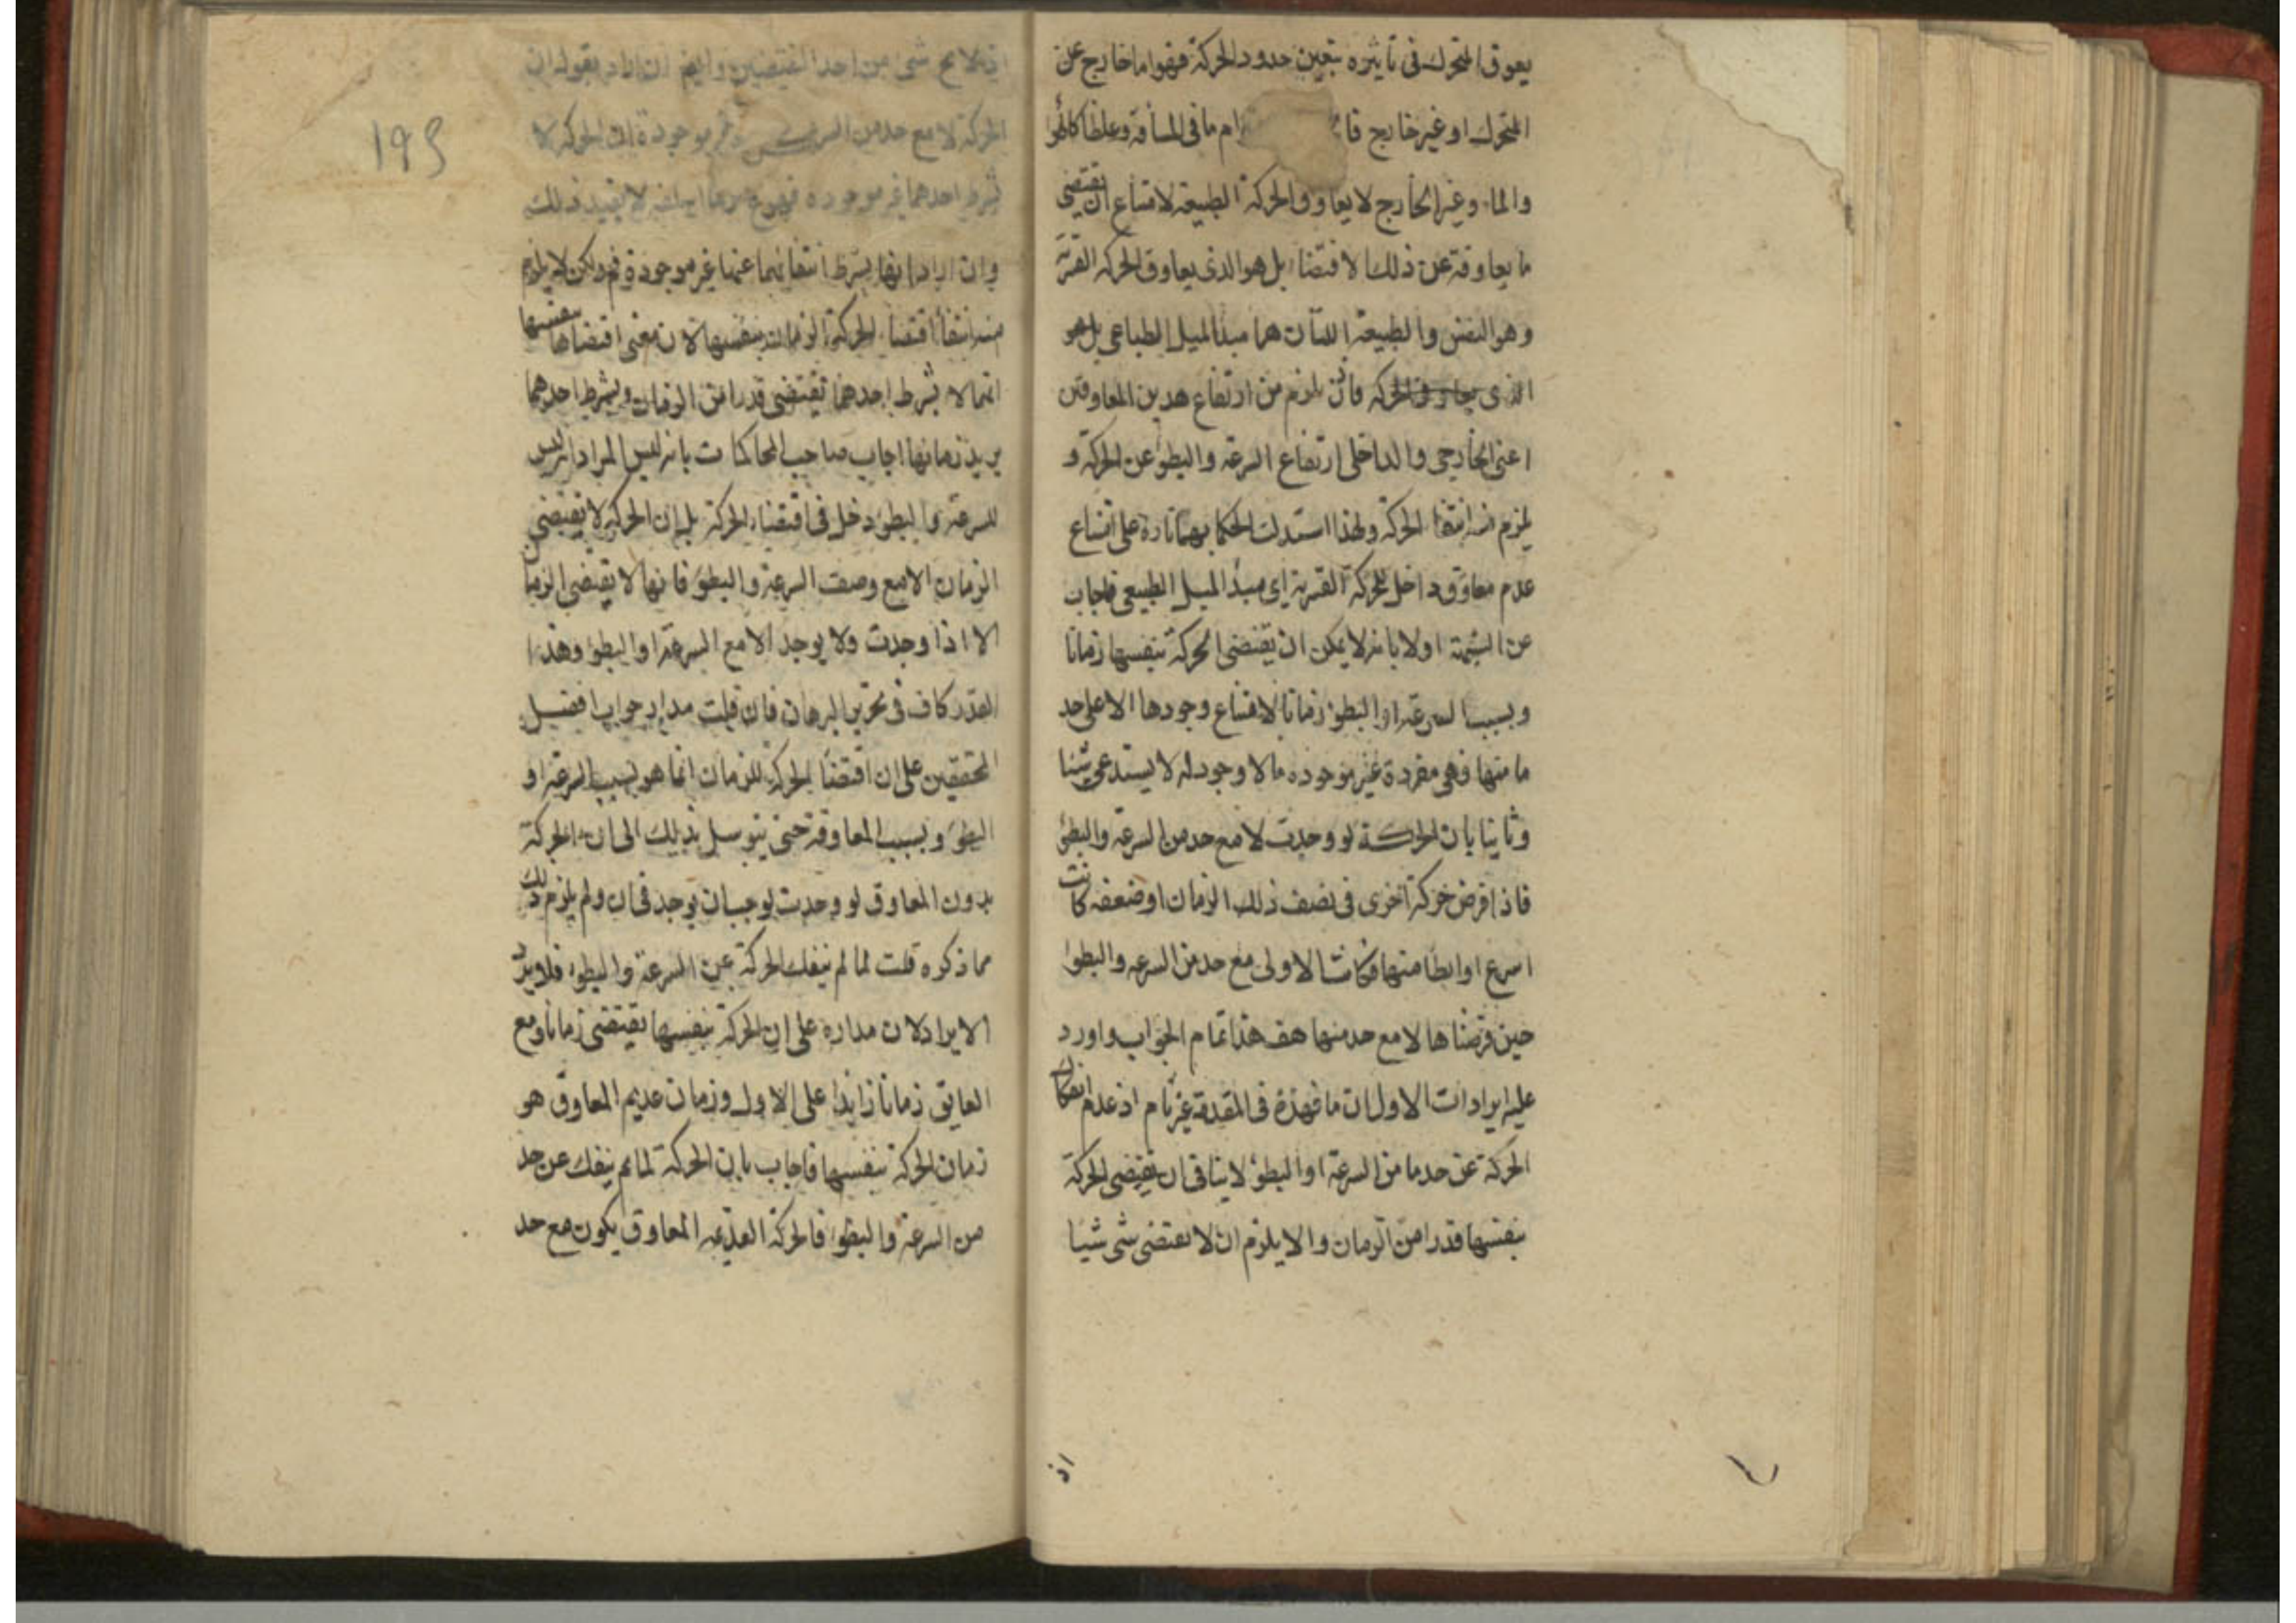 يعوق المتحرك فى تأثيره بتعيين حدود الحركة فهو اما خارج عن
المتحرك او غير خارج فا ام ما فى المسافة وغلظا كالهوا
والماء وغير الخارج لا يعاوق الحركة الطبيعية لامتناع ان يقتضى
ما يعاوقه عن ذلك الاقتضاء بل هو الذى يعاوق الحركة القسرية
وهو النفس والطبيعة اللتان هما مبدأ الميل الطباعى بل هو
الذى يعاوق الحركة فاذن يلزم من ارتفاع هذين المعاوقين
اعنى الخارجى والداخلى ارتفاع السرعة والبطؤ عن الحركة و
يلزم منه انتفاء الحركة ولهذا استدلت الحكما بهما تارة على امتناع
عدم معاوق داخل للحركة القسرية اى مبدأ الميل الطبيعى فاجاب
عن الشبهة اولا بانه لا يمكن ان يقتضى الحركة بنفسها زمانا
وبسبب السرعة او البطؤ زمانا لامتناع وجودها الا على حد
ما منها فهى مفردة غير موجودة وما لا وجود له لا يستدعى شيئا
وثانيا بان الحركة لو وجدت لا مع حد من السرعة والبطؤ
فاذا فرض حركة اخرى فى نصف ذلك الزمان او ضعفه كانت
اسرع او ابطا منها فكانت الاولى مع حد من السرعه والبطوا
حين فرضناها لا مع حد منها هف هذا تمام الجواب واورد
عليه ايرادات الاول ان ما فهذه فى المقدمة غير تام اذ عدم انفكاك
الحركة عن حد ما من السرعة او البطؤ لا ينافى ان يقتضى الحركة
بنفسها قدرا من الزمان والا يلزم ان لا يقتضى شى شيا
اذ
195
اذ لا يخ شى من احد النقيضين وايضا ان اراد بقوله ان
الحركة لا مع حد من السرعة غير موجودة ان الحركة لا
بشرط احدهما غير موجوده فهو لا يفيد ذلك
وان اراد انها بشرط انتفائهما عنها غير موجودة فم ولكن لا يلزم
منه انتفاء اقتضاء الحركة الزمان بنفسها لان معنى اقتضاها بنفسها
انها لا بشرط احدهما تقتضى قدرا من الزمان وبشرط احدهما
يزيد زمانها اجاب صاحب المحاكمات بانه ليس المراد انه ليس
للسرعة والبطؤ دخل فى اقتضاء الحركة بل ان الحركة لا تقتضى
الزمان الا مع وصف السرعة والبطؤ فانها لا يقتضى الزمان
الا اذا وجدت ولا يوجد الا مع السرعة او البطؤ وهذا
القدر كاف فى تحرير البرهان فان قلت مدار جواب افضل
المحققين على ان اقتضاء الحركة للزمان انما هو بسبب السرعة او
البطؤ وبسبب المعاوقة حتى يتوسل بذلك الى ان الحركة
بدون المعاوق لو وجدت لوجب ان يوجد فى ان ولم يلزم ذلك
مما ذكره قلت لما لم ينفك الحركة عن السرعة والبطوء فلا يرد
الايراد لان مداره على ان الحركة بنفسها يقتضى زمانا ومع
العايق زمانا زايدا على الاول وزمان عديم المعاوق هو
زمان الحركة بنفسها فاجاب بان الحركة لما لم ينفك عن حد
من السرعة والبطؤ فالحركة العديمه المعاوق يكون مع حد